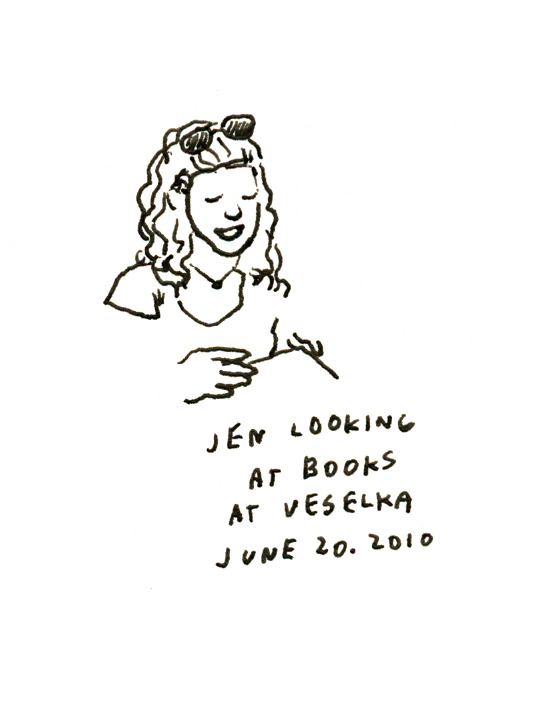 JEN LOOKING
AT BOOKS
AT VESELKA
JUNE 20. 2010